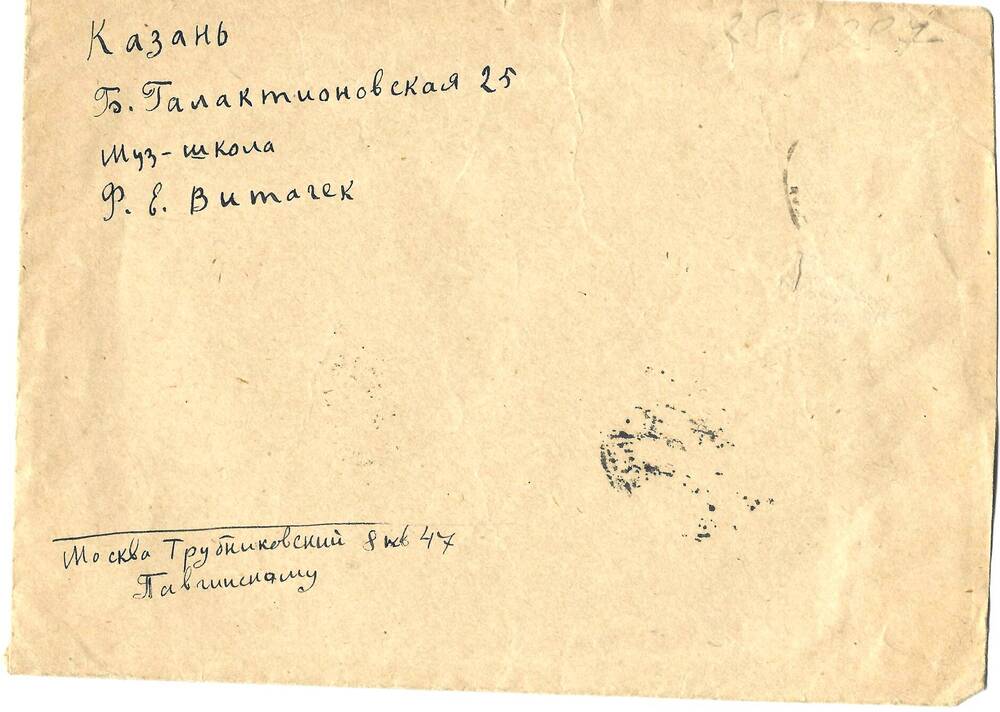 Казань
Б. Галактионовская 25
Муз-школа
Ф. Е. Витачек
Москва Трубниковский 8 кв 47
Павчинскому